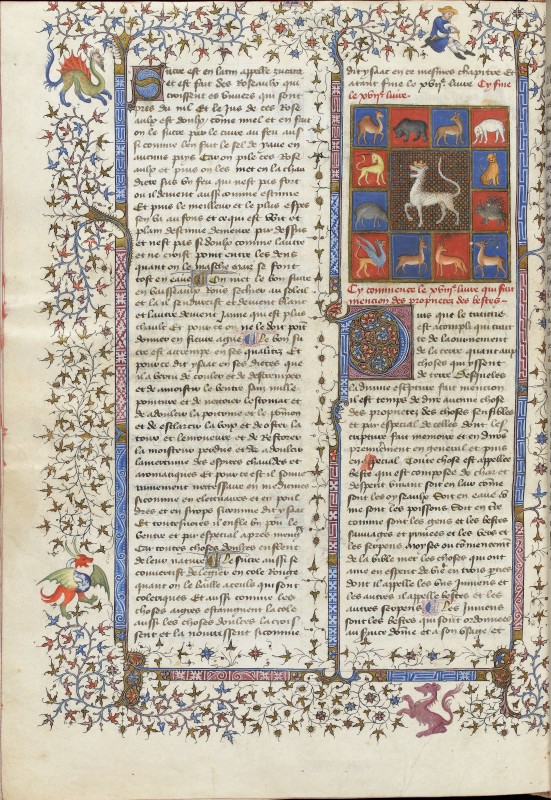 Sucre est en latin appelle zucara
et est fait des roseaulx qui
croissent es viviers qui sont
pres du nil. Et le jus de ces rose
aulx est doulx come miel et en fait
on le sucre par le cuire au feu aus
si comme len fait le sel de yaue en
aucuns pays Car on pile ces rose
aulx et puis on les met en la chau
diere sus un feu qui nest pas fort
ou il devient aussi comme escume
Et puis le meilleur et le plus espes
sen va au fons et ce qui est vuit et
plain descume demeure par dessus
et nest pas si doulx comme lautre
et ne croist point entre les dens
quant on le masche mais se font
tost en eaue On met le bon sucre
en vaisseaulx rons secher au soleil
et la il sendurcist et devient blanc
et lautre devient jaune qui est plus
chault Et pour ce on ne le doit point
donner en fievre ague Le bon su
cre est attrempe en ses qualitez Et
pour ce dit ysaac en ses dietes que
il a vertu de
et damoistir le ventre sans nulle
pointure et de nettoier lestomac et
de adoulcir la poitrine et le pomon
et de esclarcir la voix et de oster la
toux et
la moisteur perdue et de adoulcir
lamertume des espices chauldes et
aromatiques Et pour ce est il souve
rainement necessaire en medicines
sicomme en electuaires et en poul
dres et en sirops sicomme dit ysaac
Et toutesvoies il enfle un pou le
ventre et par especial apres mengier
Car toutes choses doulces enflent
de leur nature Le sucre aussi se
convertist de legier en cole rouge
quant on le baille a ceulx qui sont
coleriques Et aussi comme les
choses aigres estaingnent la cole
aussi les choses doulces lacrois
sent et la nourrissent sicomme
dit ysaac en ce mesmes chapitre Et
ainsi fine le xvije livre. Cy fine
le xvije livre.
Cy commence le xviije livre qui fait
mention des proprietez des bestes.
Puis que le traittie
est acompli qui traitte
de laournement
de la terre quant aux
choses qui yssent
de terre Desquelles
la divine escripture fait mention
il est temps de dire aucune chose
des proprietez des choses sensibles
et par especial de celles dont les
cripture fait memoire et en dirons
premierement en general et puis
en especial. Toute chose est appellee
beste qui est composee de char et
desperit vivant soit en lair come
sont les oyseaulx Soit en eaue co
me sont les poissons Soit en terre
comme sont les gens et les bestes
sauvages et privees et les vers et
les serpens. Moyse ou comencement
de la bible met les choses qui ont
ame en
dont il appelle les uns jumens et
les autres il appelle bestes et les
autres serpens Les jumens
sont les bestes qui sont ordonnees
au servir dome et a son usage et